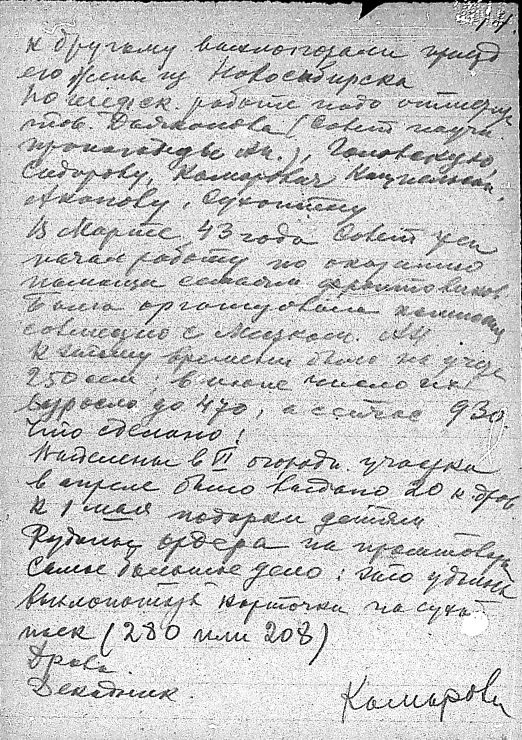 к другому выхлопотали приезд
его жены из Новосибирска
По шефск. работе надо отметить
тов. Дьяконова (Совет научн.
пропаганды Ан.), Головскую,
Сидорову, Комарович
Акопову, Сухотину
В Марте 43 года Совет жен
начал работу по оказанию
помощи семьям фронтовиков
Была организована комиссия
совместно с Месткомом АН
К этому времени было на учете
250 сем; в июле число их
выросло до 470, а сейчас 930.
Что сделано?
Наделены в огороды. участки
в апреле было выдано 20 к. дров
К 1 мая подарки детям
ордера на промтовары
Самое большое дело: это удалось
выхлопотать карточки на сух.
паек (280 или 208)
Дрова
Декадник.
Комарова